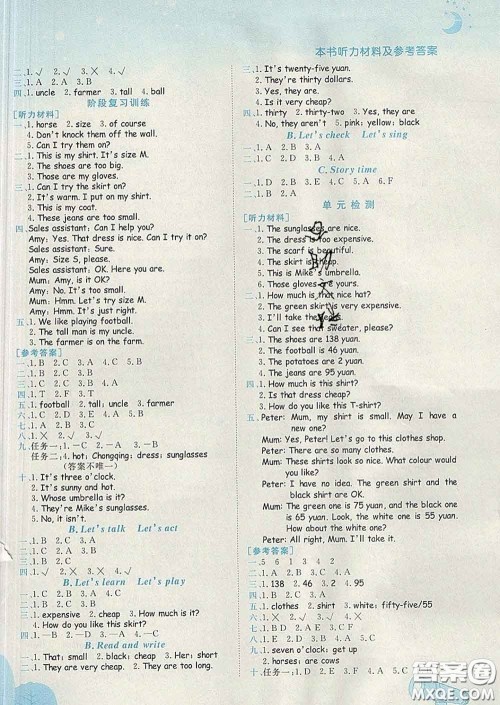 本书听力材料及参考答案
二、1. √ 2. √ 3. X 4. √
四、1. uncle 2. farmer 3. tall 4. ball
阶段复习训练
[听力材料]
一、1. horse 2. size 3. of course
4. Don't knock them off the wall.
5. Can I try them on?
二、1. This is my shirt. It's size M.
2. The shoes are too big.
3. Those are my gloves.
三、1. Can I try the skirt on?
2. It's warm. I put on my shirt.
3. This is my coat.
4. These jeans are too small.
四、Sales assistant: Can I help you?
Amy: Yes. That dress is nice. Can I try it on?
Sales assistant: Sure.
Amy: Size S, please.
Sales assistant: OK. Here you are.
Mum: Amy, is it OK?
Amy: No. It's too small.
Mum: Hmm. Let's try size M.
Amy: Hmm. It's just right.
五、1. We like playing football.
2. The tall man is my uncle.
3. The farmer is on the farm.
[参考答案]
一、1. B 2. C 3. A 4. C 5. A
二、1. B 2. C 3. A
四、1. T 2. F 3. T 4. T
五、1. football 2. tall; uncle 3. farmer
六、1. C 2. D 3. E 4. A 5. B
七、1. A 2. B 3. A 4. B 5. B
八、1. X 2. √ 3. √
九、任务一:1. B 2. C 3. D
任务二:4. hot; Chongqing; dress; sunglasses
(答案不唯一)
十、1. It's three o'clock.
2. It's sunny and hot.
3. Whose umbrella is it?
4. They're Mike's sunglasses.
5. No, it isn't.
B, Let's talk Let's act
二、1. B 2. B 3. A 4. A
三、1. D 2. A 3. C 4. B
四、1. √ 2. X 3. √ 4. √
B, Let's learn Let's play
二、1. B 2. C 3. A 4. D
三、1. expensive 2. cheap 3. How much is it?
4. How do you like this skirt?
四、1. —B 2. —D 3. —A 4. —C
B, Read and write
二、1. That; small 2. black; cheap 3. Her; short
三、1. They are very cheap. 2. They are too long.
三、1. It's twenty-five yuan.
2. They're thirty dollars.
3. Yes, they are.
4. No, it isn't cheap.
四、1. thirty 2. thirty-two 3. Yes, they are
4. No, they aren't 5. pink; yellow; black
B, Let's check Let's sing
二、1. A 2. B 3. A
三、1. B 2. D 3. C 4. E 5. A
C, Story time
二、1. D 2. B 3. E 4. C 5. A 6. F
三、1. B 2. A 3. A
单元检测
[听力材料]
一、1. The sunglasses are nice.
2. The dress is too expensive.
3. The scarf is beautiful.
4. The skirt is cheap.
5. This is Mike's umbrella.
6. Those gloves are yours.
二、1. How much is that nice hat?
2. The green skirt is very expensive.
3. I'll take the jeans.
4. Can I see that sweater, please?
三、1. The shoes are 138 yuan.
2. The football is 46 yuan.
3. The potatoes are 2 yuan.
4. The jeans are 95 yuan.
四、1. How much is this shirt?
2. Is that dress cheap?
3. How do you like this T-shirt?
五、Mum: Peter, my shirt is small. May I have a
new one?
Mum: Yes, Peter! Let's go to this clothes shop.
Peter: There are so many clothes.
Mum: This shirt is nice. What colour would
you like?
Peter: I have no idea. The green shirt and
the black shirt are OK.
Mum: The green one is 75 yuan, and the black
one is 65 yuan. The white one is 55 yuan.
How about the white one?
Peter: All right, Mum. I'll take it.
[参考答案]
二、1. A
三、1. 138 2. 46 3. 2 4. 95
四、1. A 2. B 3. A
五、1. clothes 2. shirt 3. white; fifty-five/55
九、1. seven o'clock; get up
2. horses; cows
答案圈
MXQE.COM